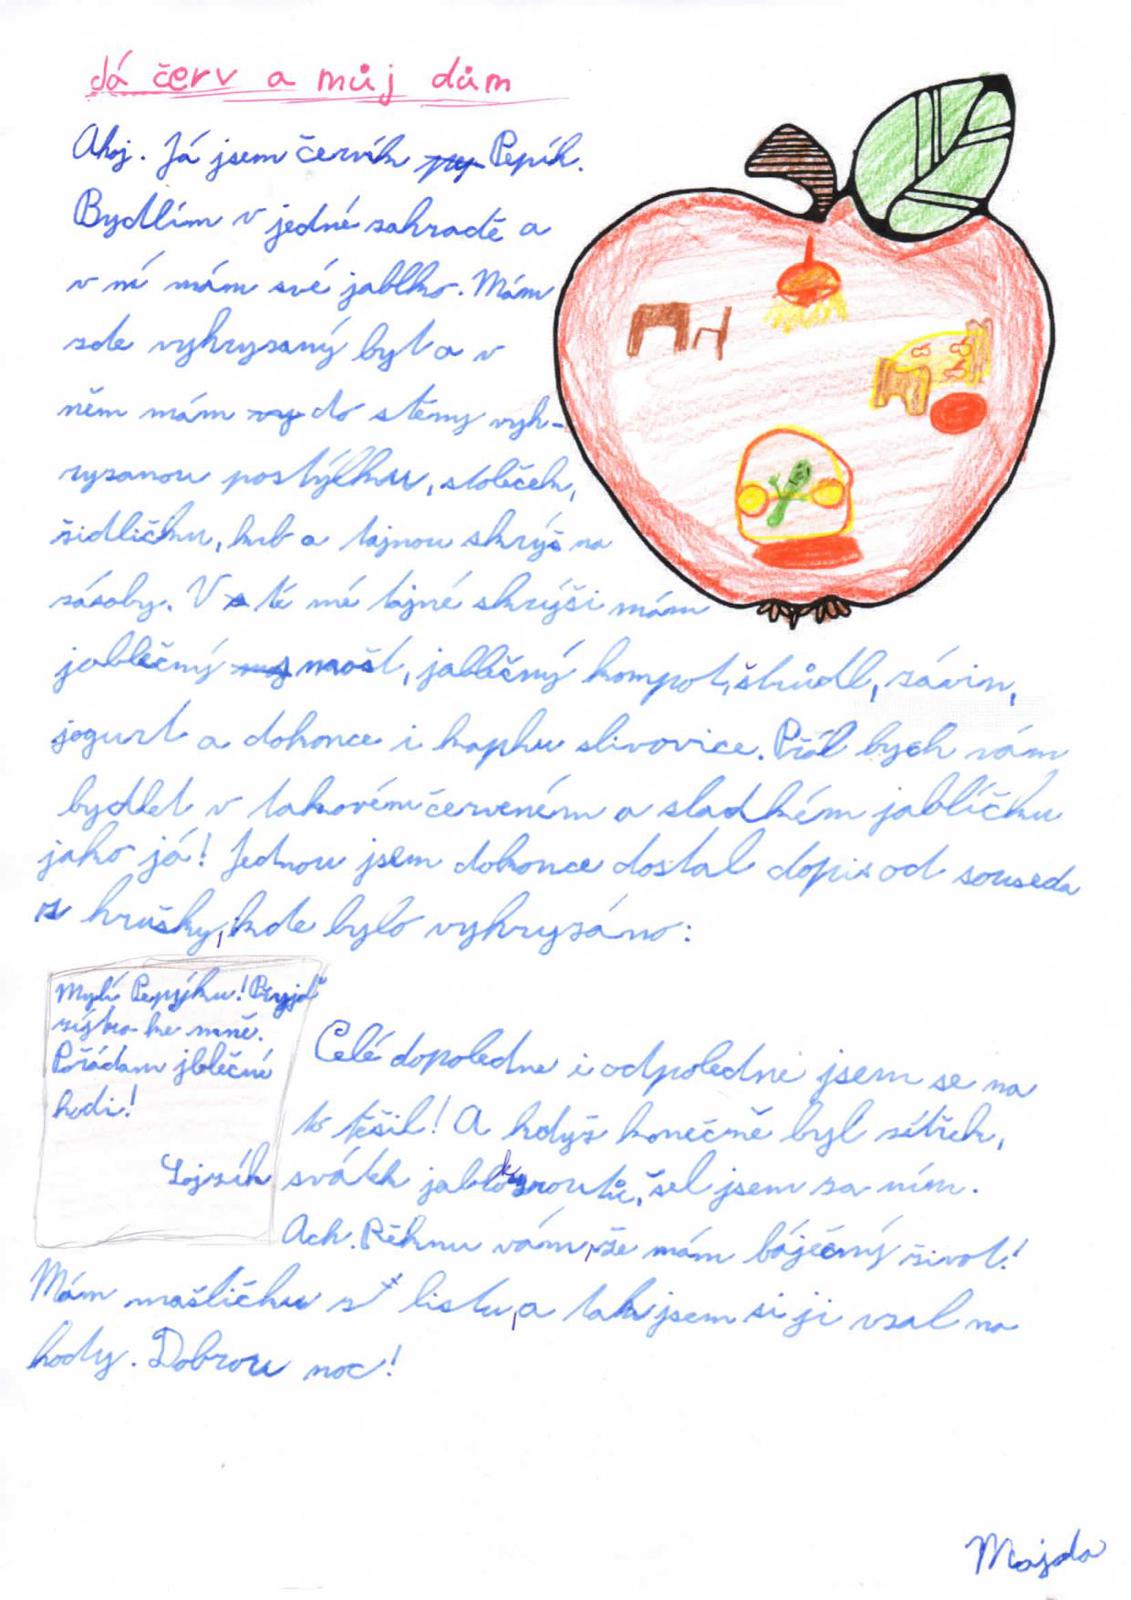 Já červ a můj dům
Ahoj. Já jsem červík Pepík.
Bydlím v jedné zahradě a
v ní mám své jablko. Mám
zde vyhryzaný byt a v
něm mám do stěny vyh-
ryzanou postýlku, stoleček,
židličku, krb a tajnou skrýš na
zásoby. V té mé tajné skrýši mám
jablečný mošt, jablečný kompot, štrůdl, závin,
jogurt a dokonce i kapku slivovice. Přál bych vám
bydlet v takovém červeném a sladkém jablíčku
jako já! Jednou jsem dokonce dostal dopis od souseda
z hrušky, kde bylo vyhryzáno:
Mylí Pepýku! Pryjď
zýtra ke mně.
Pořádam jblečné
hodi!
Lojzík
Celé dopoledne i odpoledne jsem se na
to těšil! A když konečně byl zítřek,
svátek jablkožroutů, šel jsem za ním.
Ach. Řeknu vám, že mám báječný život!
Mám mašličku z listu, a tak jsem si ji vzal na
hody. Dobrou noc!
Majda